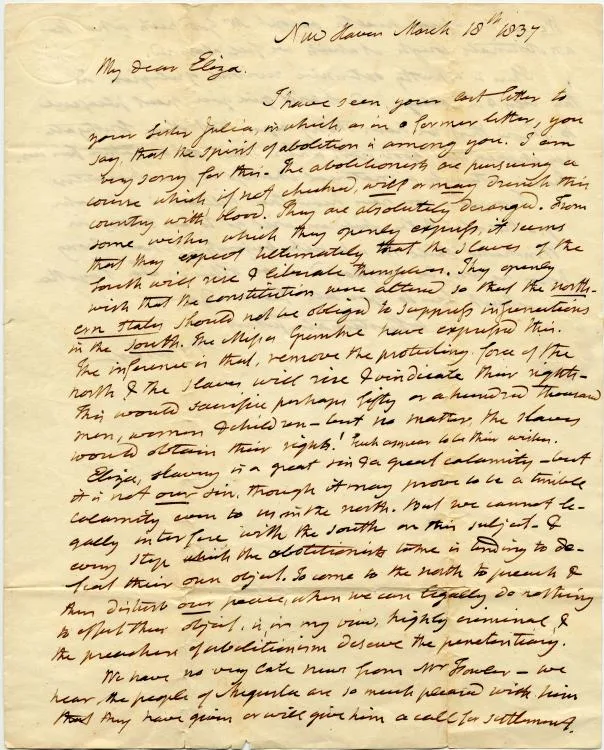 New Haven March 18th 1837
My dear Eliza.
I have seen your last letter to
your Sister Julia, in which, as in a former letter, you
say, that the spirit of abolition is among you. I am
very sorry for this - The abolitionists are pursuing a
course which if not checked, will or may drench this
country with blood. They are absolutely deranged. From
some wishes which they openly express, it seems
that they expect ultimately that the slaves of the
South will rise & liberate themselves. They openly
wish that the constitution were altered so that the north-
ern states should not be obliged to suppress insurrections
in the South. The Misses Grimke have expressed this.
The inference is that, remove the protecting force of the
north & the slaves will rise & vindicate their rights -
This would sacrifice perhaps fifty or a hundred thousand
men, women & children - but no matter, the slaves
would obtain their rights! Such appear to be their wishes.
Eliza, slavery is a great sin & a great calamity - but
it is not our sin, though it may prove to be a terrible
calamity even to us in the north. But we cannot le-
gally interfere with the south on this subject - &
every step which the abolitionists take is tending to de-
feat their own object. To come to the north to preach &
thus disturb our peace, when we can legally do nothing
to effect their object, is, in my view, highly criminal, &
the preachers of abolitionism deserve the penitentiary.
We have no very late news from Mr Fowler - we
hear, the people of Augusta are so much pleased with him
that they have given or will give him a call for settlement.